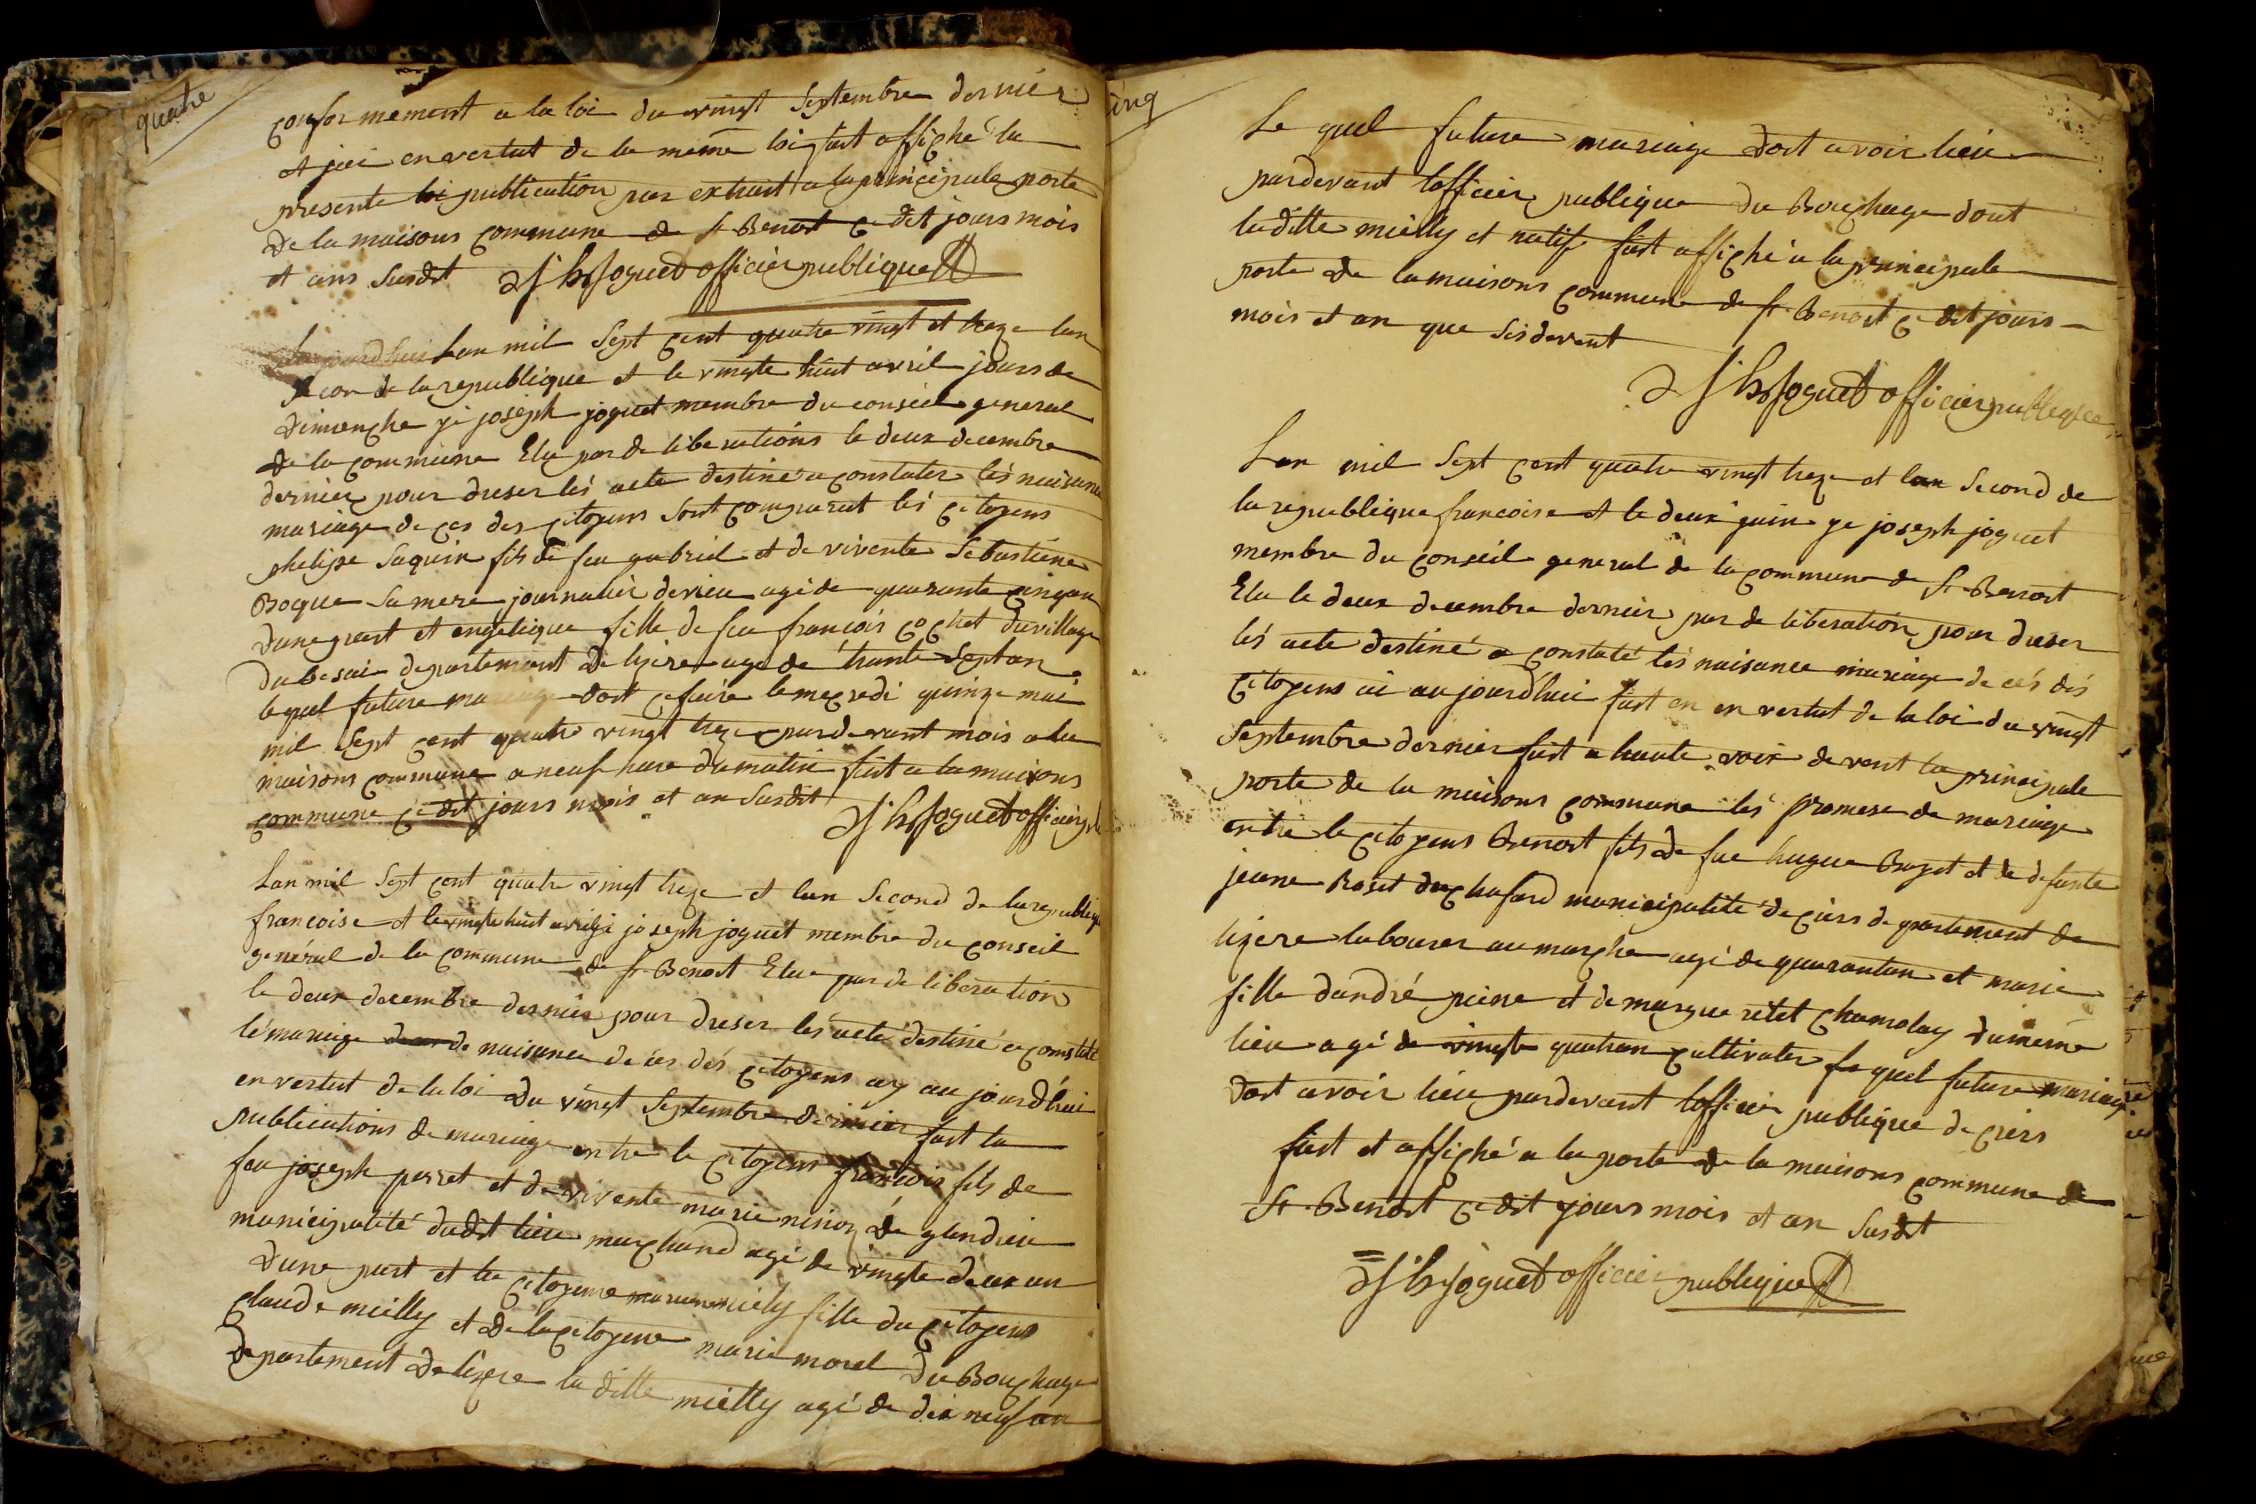 quatre
conformement a la loi du vingt Septembre dernier
et jai en vertut de la meme loi fait affiché la
presente loi publication par extrait a la principale porte
de la maisons commune de St Benoit ce dit jours mois
et ans Susdit Joguet officier publique
aujourdhui Lan mil Sept cent quatre vingt et treze lan
Secon de la republique et le vingte huit avril jours de
dimenche je joseph joguet membre du conseil general
de la commune Elu par de liberations le deux decembre
dernier pour dreser lés acte destine a constater lés naisance
mariage de ces des citoyens sont comparut lés citoyens
phelipe Saquin fils de feu gabriel et de vivente Sebastiene
Boque Sa mere journalier de rieu agé de quarante cinq an
dune part et engelique fille de feu francois cochet du village
du besai departement de lizere age de trante Sept an
le quel future mariage doit ce faire le mecredi quinze mai
mil Sept cent quatre vingt treze pardevant mois a la
maisons commune a neuf hure du matin fait a la maisons
commune ce dit jours mois et an Susdit
Joguet officier
Lan mil Sept cent quatre vingt treze et lan Second de la republique
francoise et le vingte huit avril je joseph joguet membre du conseil
général de la commune de St Benoit Elue par de liberation
le deux decembre dernier pour dreser lés acte destiné a constaté
lé mariage de naisance de ces dés citoyens ay au jourdhui
en vertut de la loi du vingt Septembre dernier fait la
publications de mariage entre le citoyens francois fils de
feu joseph perret et de vivente marie de glandieu
municipalité dudit lieu marchand agé de vingte deux an
dune part et la citoyene fille du citoyens
claude mielly et de la citoyene marie morel du Bouchage
departement de lizere la ditte mielly agé de dix neuf an
cinq
Le quel future mariage doit avoir lieu
pardevant lofficier publique du Bouchage dont
la ditte mielly et natife fait affiché a la principale
porte de la maisons commune de St Benoit ce dit jours
mois et an que sis devent
Joguet officier publique
Lan mil Sept cent quatre vingt treze et lan Second de
la republique francoise et le deux juin je joseph joguet
membre du conseil general de la commune de St Benoit
Elu le deux decembre dernier par de liberation pour dreser
lés acte destiné a constaté lés naisance mariage de cés dés
citoyens ai au jourdhui fait en en vertut de la loi du vingt
Septembre dernier fait a haute voix de vent la principale
porte de la maisons commune lés promese de mariage
entre le citoyens Benoit fils de fue hugue et de defunte
jeane Roset du chafard municipalité de ciers departement de
lizere labourer au marche agé de quarantan et marie
fille dandré et de margue ritet chamolay du méme
lieu agé de vingte quatran cultivater Le quel future mariage
doit avoir lieu pardevant lofficier publique de ciers
fait et affiché a la porte de la maisons commune de
St Benoit ce dit jours mois et an Susdit
Joguet officier publique